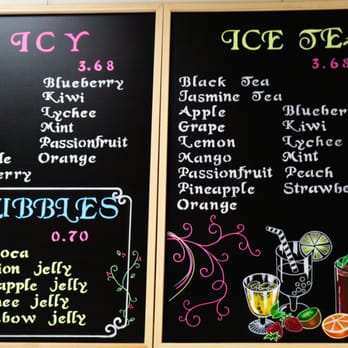 ICY
3.68
Blueberry
Kiwi
Lychee
Mint
Passionfruit
Orange
UBBLES
0.70
oca
ion jelly
apple jelly
hee jelly
nbow jelly
ICE TEA
3.68
Black Tea
Jasmine Tea
Apple Blueber
Grape Kiwi
Lemon Lychee
Mango Mint
Passionfruit Peach
Pineapple Strawbe
Orange